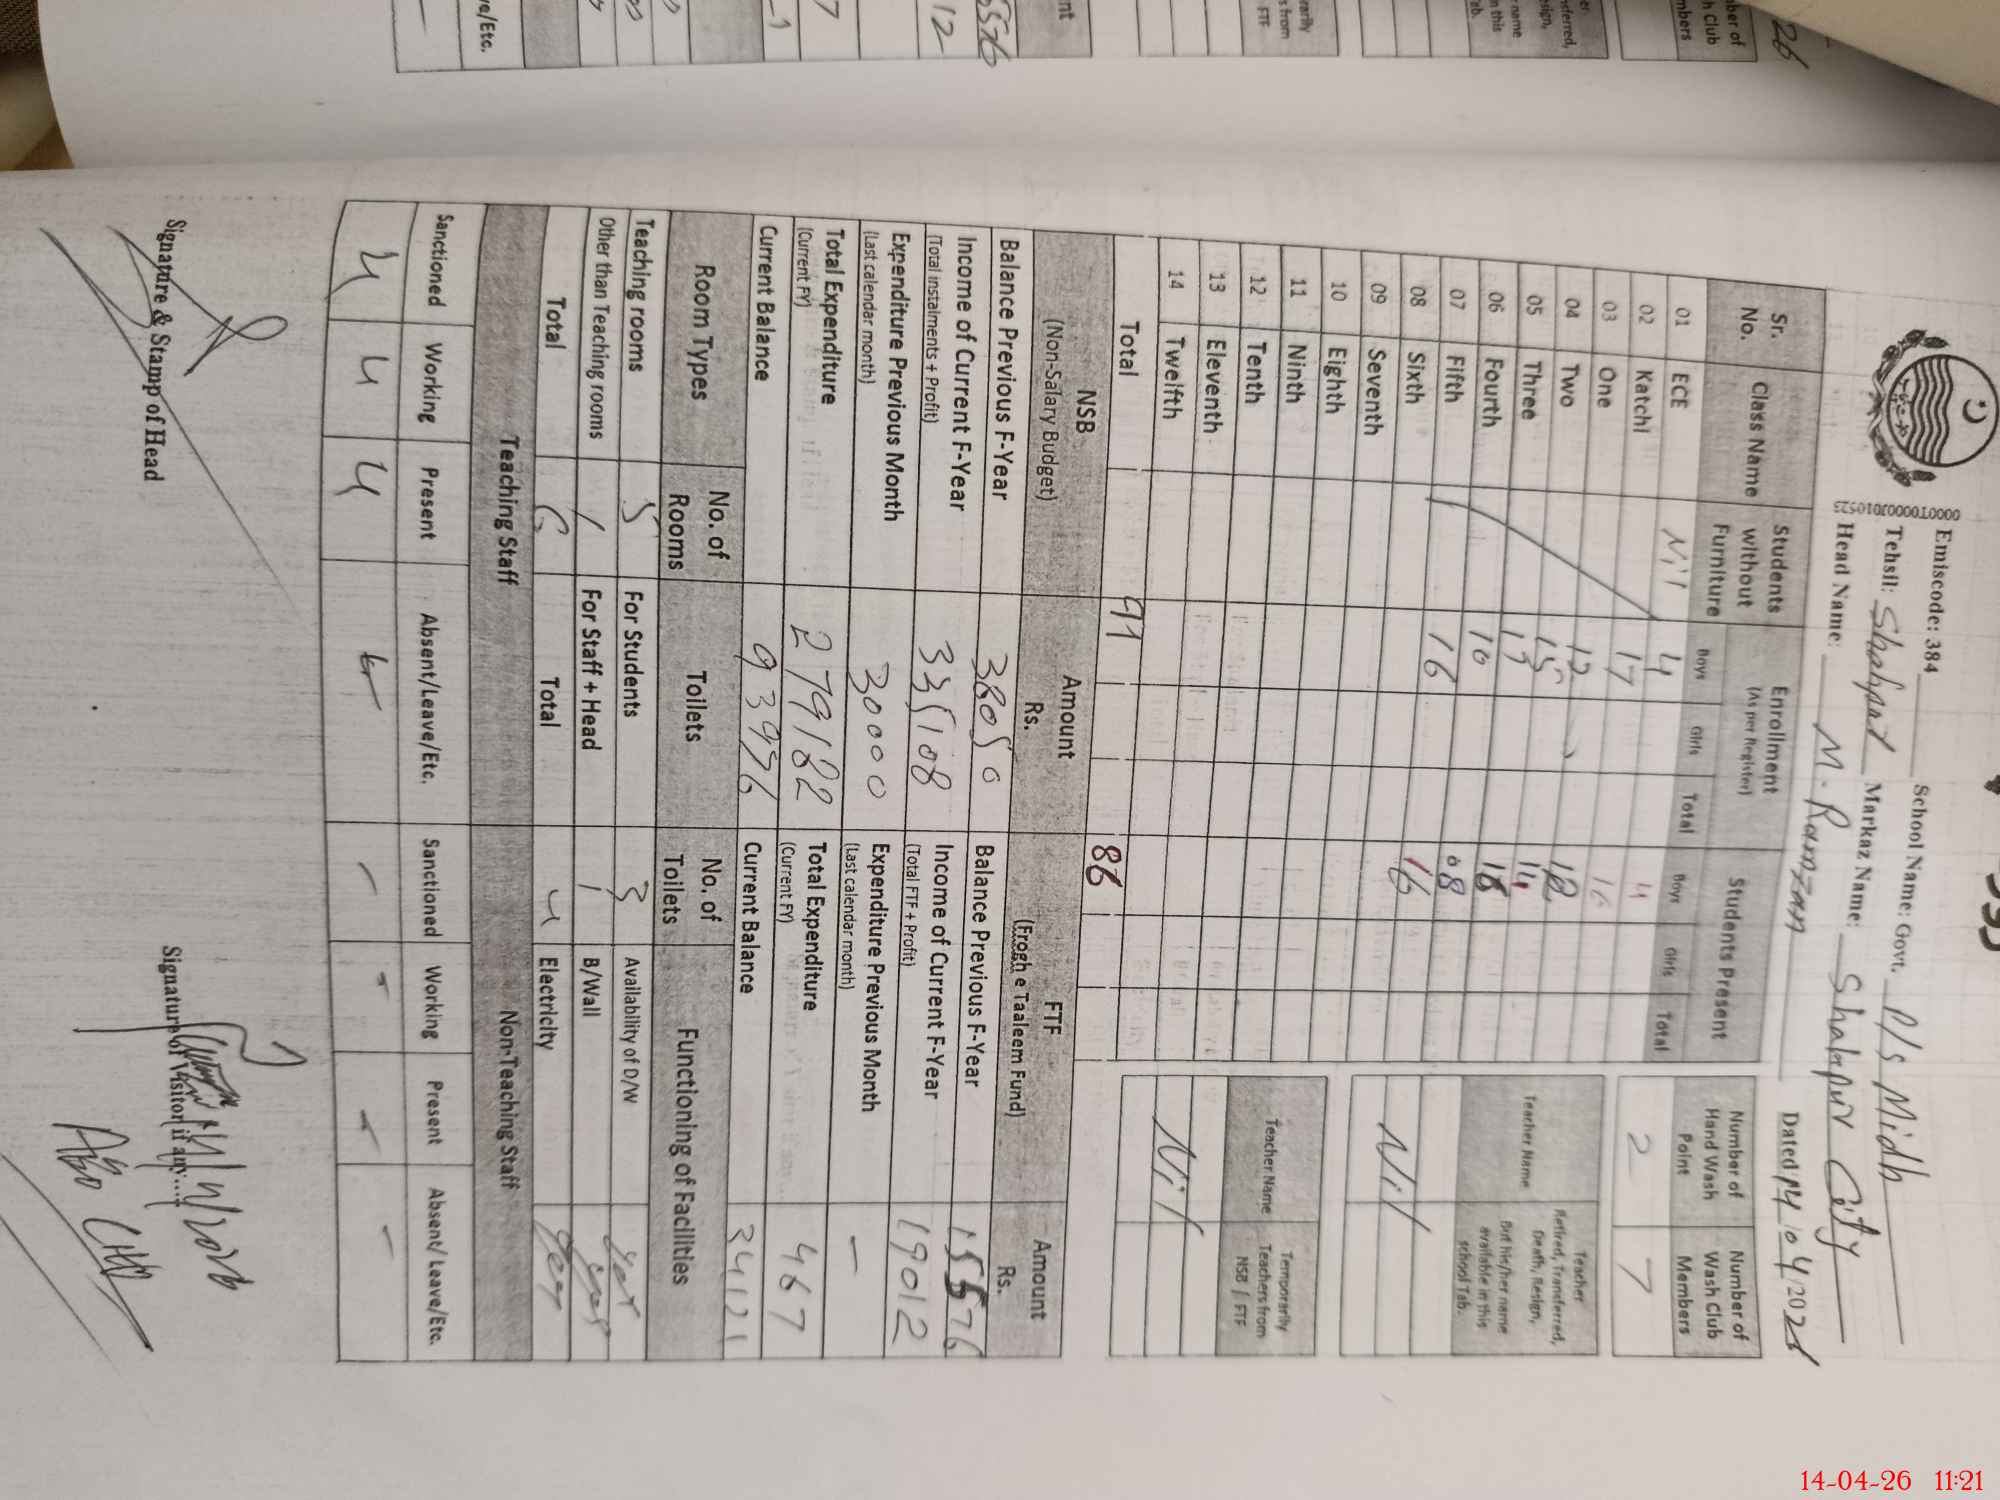 Emiscode: 384 School Name: Govt. P/s Midh
Tehsil: Shahpur Markaz Name: Shahpur City
Head Name: M. Ramzan Dated 14/04/2026
Sr. No. Class Name Students without Furniture Enrollment (As per Register) Students Present
Boys Girls Total Boys Girls Total
01 ECE Nil 4 4
02 Katchi 17 16
03 One 12
04 Two 15 12
05 Three 14
06 Fourth 10
07 Fifth 16 08
08 Sixth 16
09 Seventh
10 Eighth
11 Ninth
12 Tenth
13 Eleventh
14 Twelfth
Total 91 86
Number of Hand Wash Point Number of Wash Club Members
2 7
Teacher Name Teacher Retired, Transferred, Death, Resign, But his/her name available in this school Tab.
Nil
Teacher Name Temporarily Teachers from NSB / FTF
Nil
NSB (Non-Salary Budget) Amount Rs. FTF (Frogh e Taaleem Fund) Amount Rs.
Balance Previous F-Year 38050 Balance Previous F-Year 15576
Income of Current F-Year (Total instalments + Profit) 335108 Income of Current F-Year (Total FTF + Profit) 19012
Expenditure Previous Month (Last calendar month) 30000 Expenditure Previous Month (Last calendar month) -
Total Expenditure (Current FY) 279182 Total Expenditure (Current FY) 467
Current Balance 93976 Current Balance 34121
Room Types No. of Rooms Toilets No. of Toilets Functioning of Facilities
Teaching rooms 5 For Students 3 Availability of D/W yes
Other than Teaching rooms 1 For Staff + Head 1 B/Wall yes
Total 6 Total 4 Electricity yes
Teaching Staff Non-Teaching Staff
Sanctioned Working Present Absent/Leave/Etc. Sanctioned Working Present Absent/Leave/Etc.
4 4 4 - - - -
Signature & Stamp of Head Signature of Visitor if any:...
14-04-26 11:21